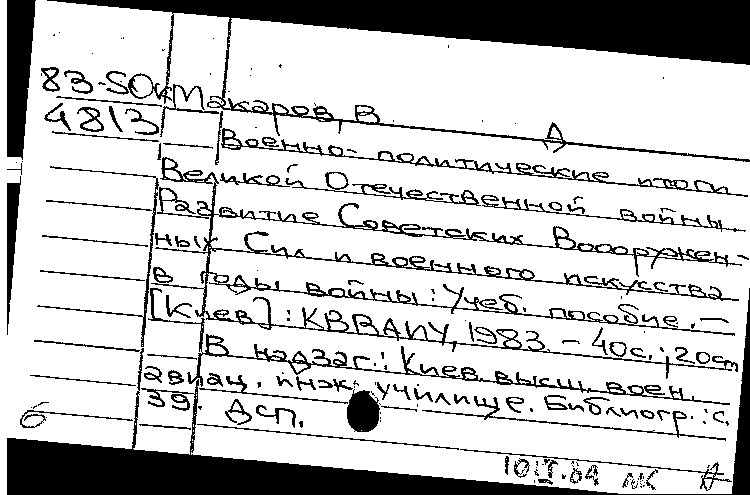 83-5Ок Макаров, В.
4813
А
Военно-политические итоги
Великой Отечественной войны.
Развитие Советских Вооружен-
ных Сил и военного искусства
в годы войны: Учеб. пособие. —
[Киев]: КВВАИУ, 1983 - 40с.; 20см
В надзаг.: Киев. высш. воен.
авиац. инж. училище. Библиогр.: с.
39. Дсп.
б
10.II.84 МК А